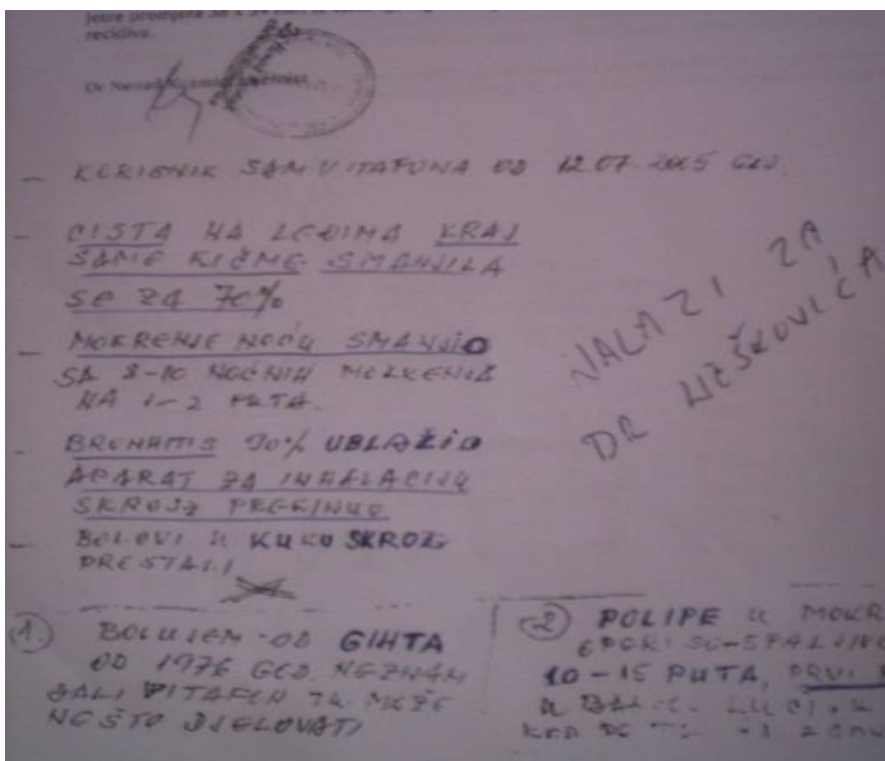 jetre promjera 38 x 34 mm
recidivu.
Dr Nenad
- KORISNIK SAM VITAFONA OD 12.07.2005 GOD.
- CISTA NA LEDIMA KRAJ
SAME KIČME SMANJILA
SE ZA 70%
- MOKRENJE NOĆU SMANJIO
SA 8-10 NOĆNIH MOKRENJA
NA 1-2 PUTA.
- BRONHITIS 90% UBLAŽIO
APARAT ZA INHALACIJU
SKROJZ PREKINUO
- BOLOVI U KUKU SKROZ
PRESTALI
NALAZI ZA
DR
1. BOLUJEM OD GIHTA
OD 1976 GOD. NEZNAM
DALI VITAFON TU MOŽE
NEŠTO DJELOVATI
2 POLIPE U MOKR
10-15 PUTA, PRVI
U